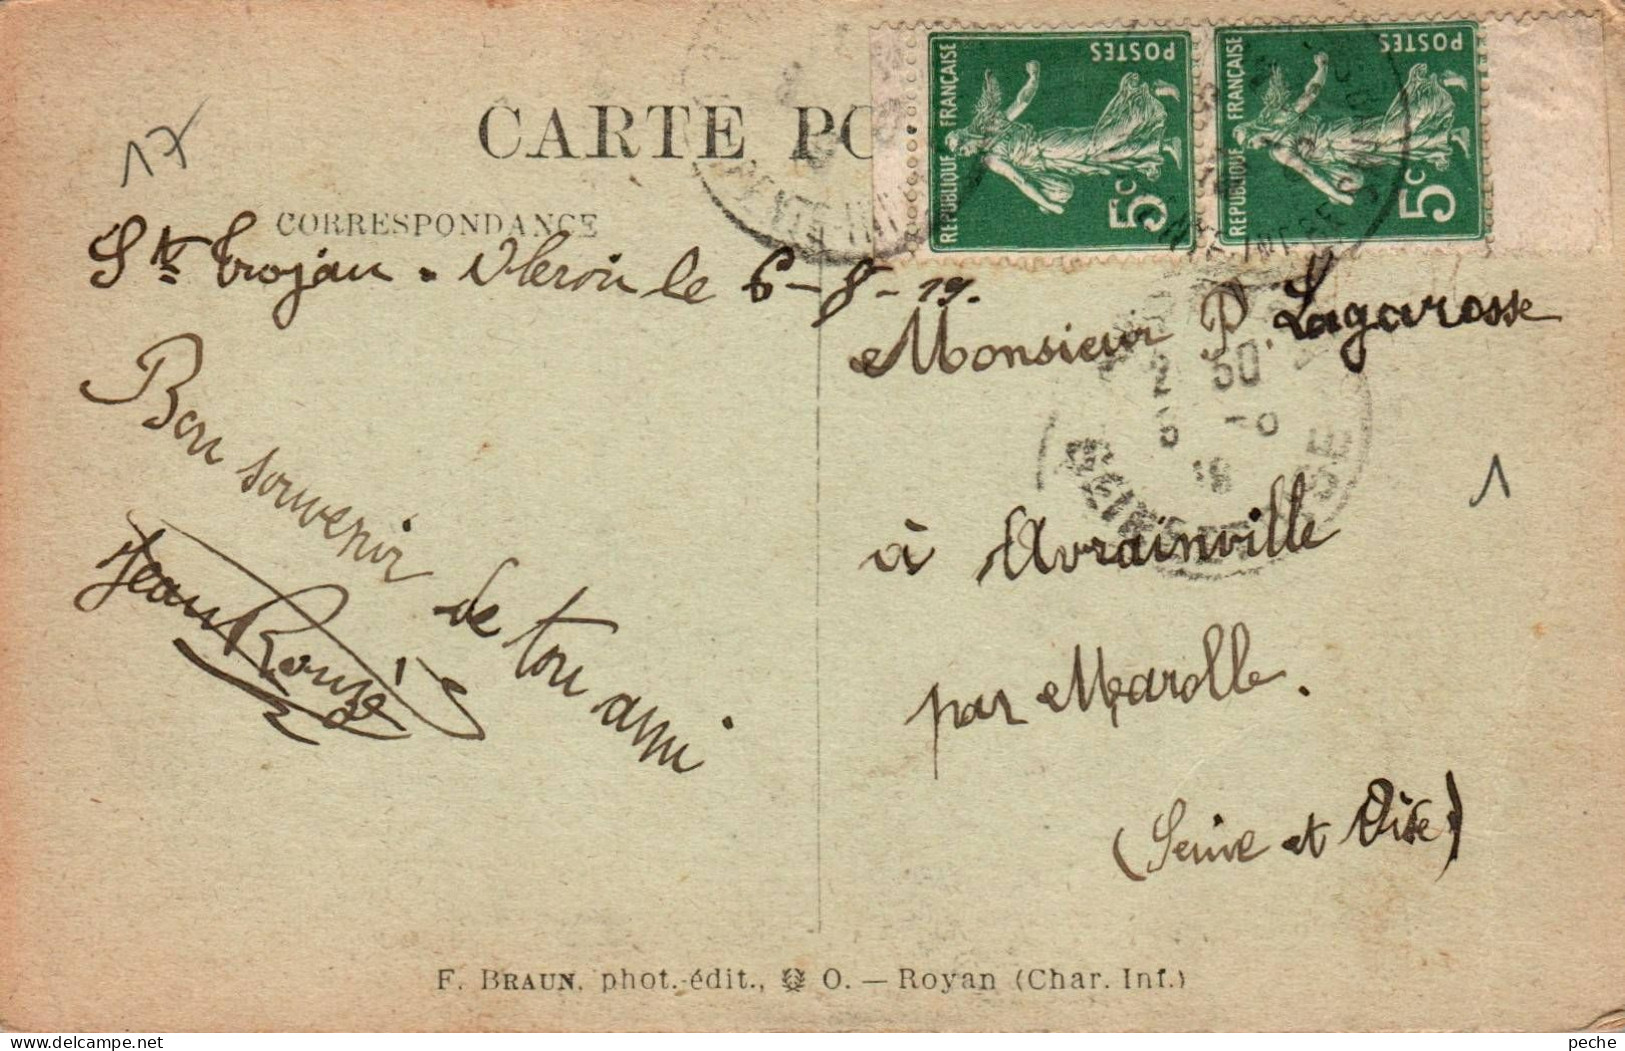 17
CARTE PO
CORRESPONDANCE
St Trojan. Oleron le 6-8-19.
Bon souvenir de ton ami
Jean Rousé
POSTES
REPUBLIQUE FRANÇAISE
5c
POSTES
REPUBLIQUE FRANÇAISE
5c
Monsieur P. Lagarosse
à Avrainville
par Marolle.
(Seine et Oise)
1
F. BRAUN, phot.-édit., O. — Royan (Char. Inf.)
peche